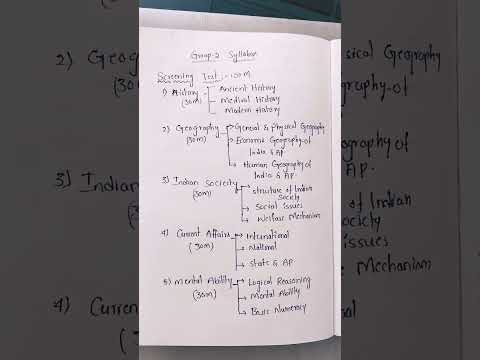 Group-2 Syllabus
Screening Test :- 150M
1) History Ancient History
(30m) Medival History
Modern History
2) Geography General & Physical Geography
(30m) Economic Geography of
India & AP
Human Geography of
India & AP.
3) Indian Society structure of Indian
(30m) Society
Social issues
Welfare Mechanism
4) Current Affairs International
(30m) National
State & AP
5) Mental Ability Logical Reasoning
(30m) Mental Ability
Basic Numeracy
2) Geog
(30m)
3) Indian
4) Current
ysical Geography
ography of
AP.
Indian
Society
issues
e Mechanism